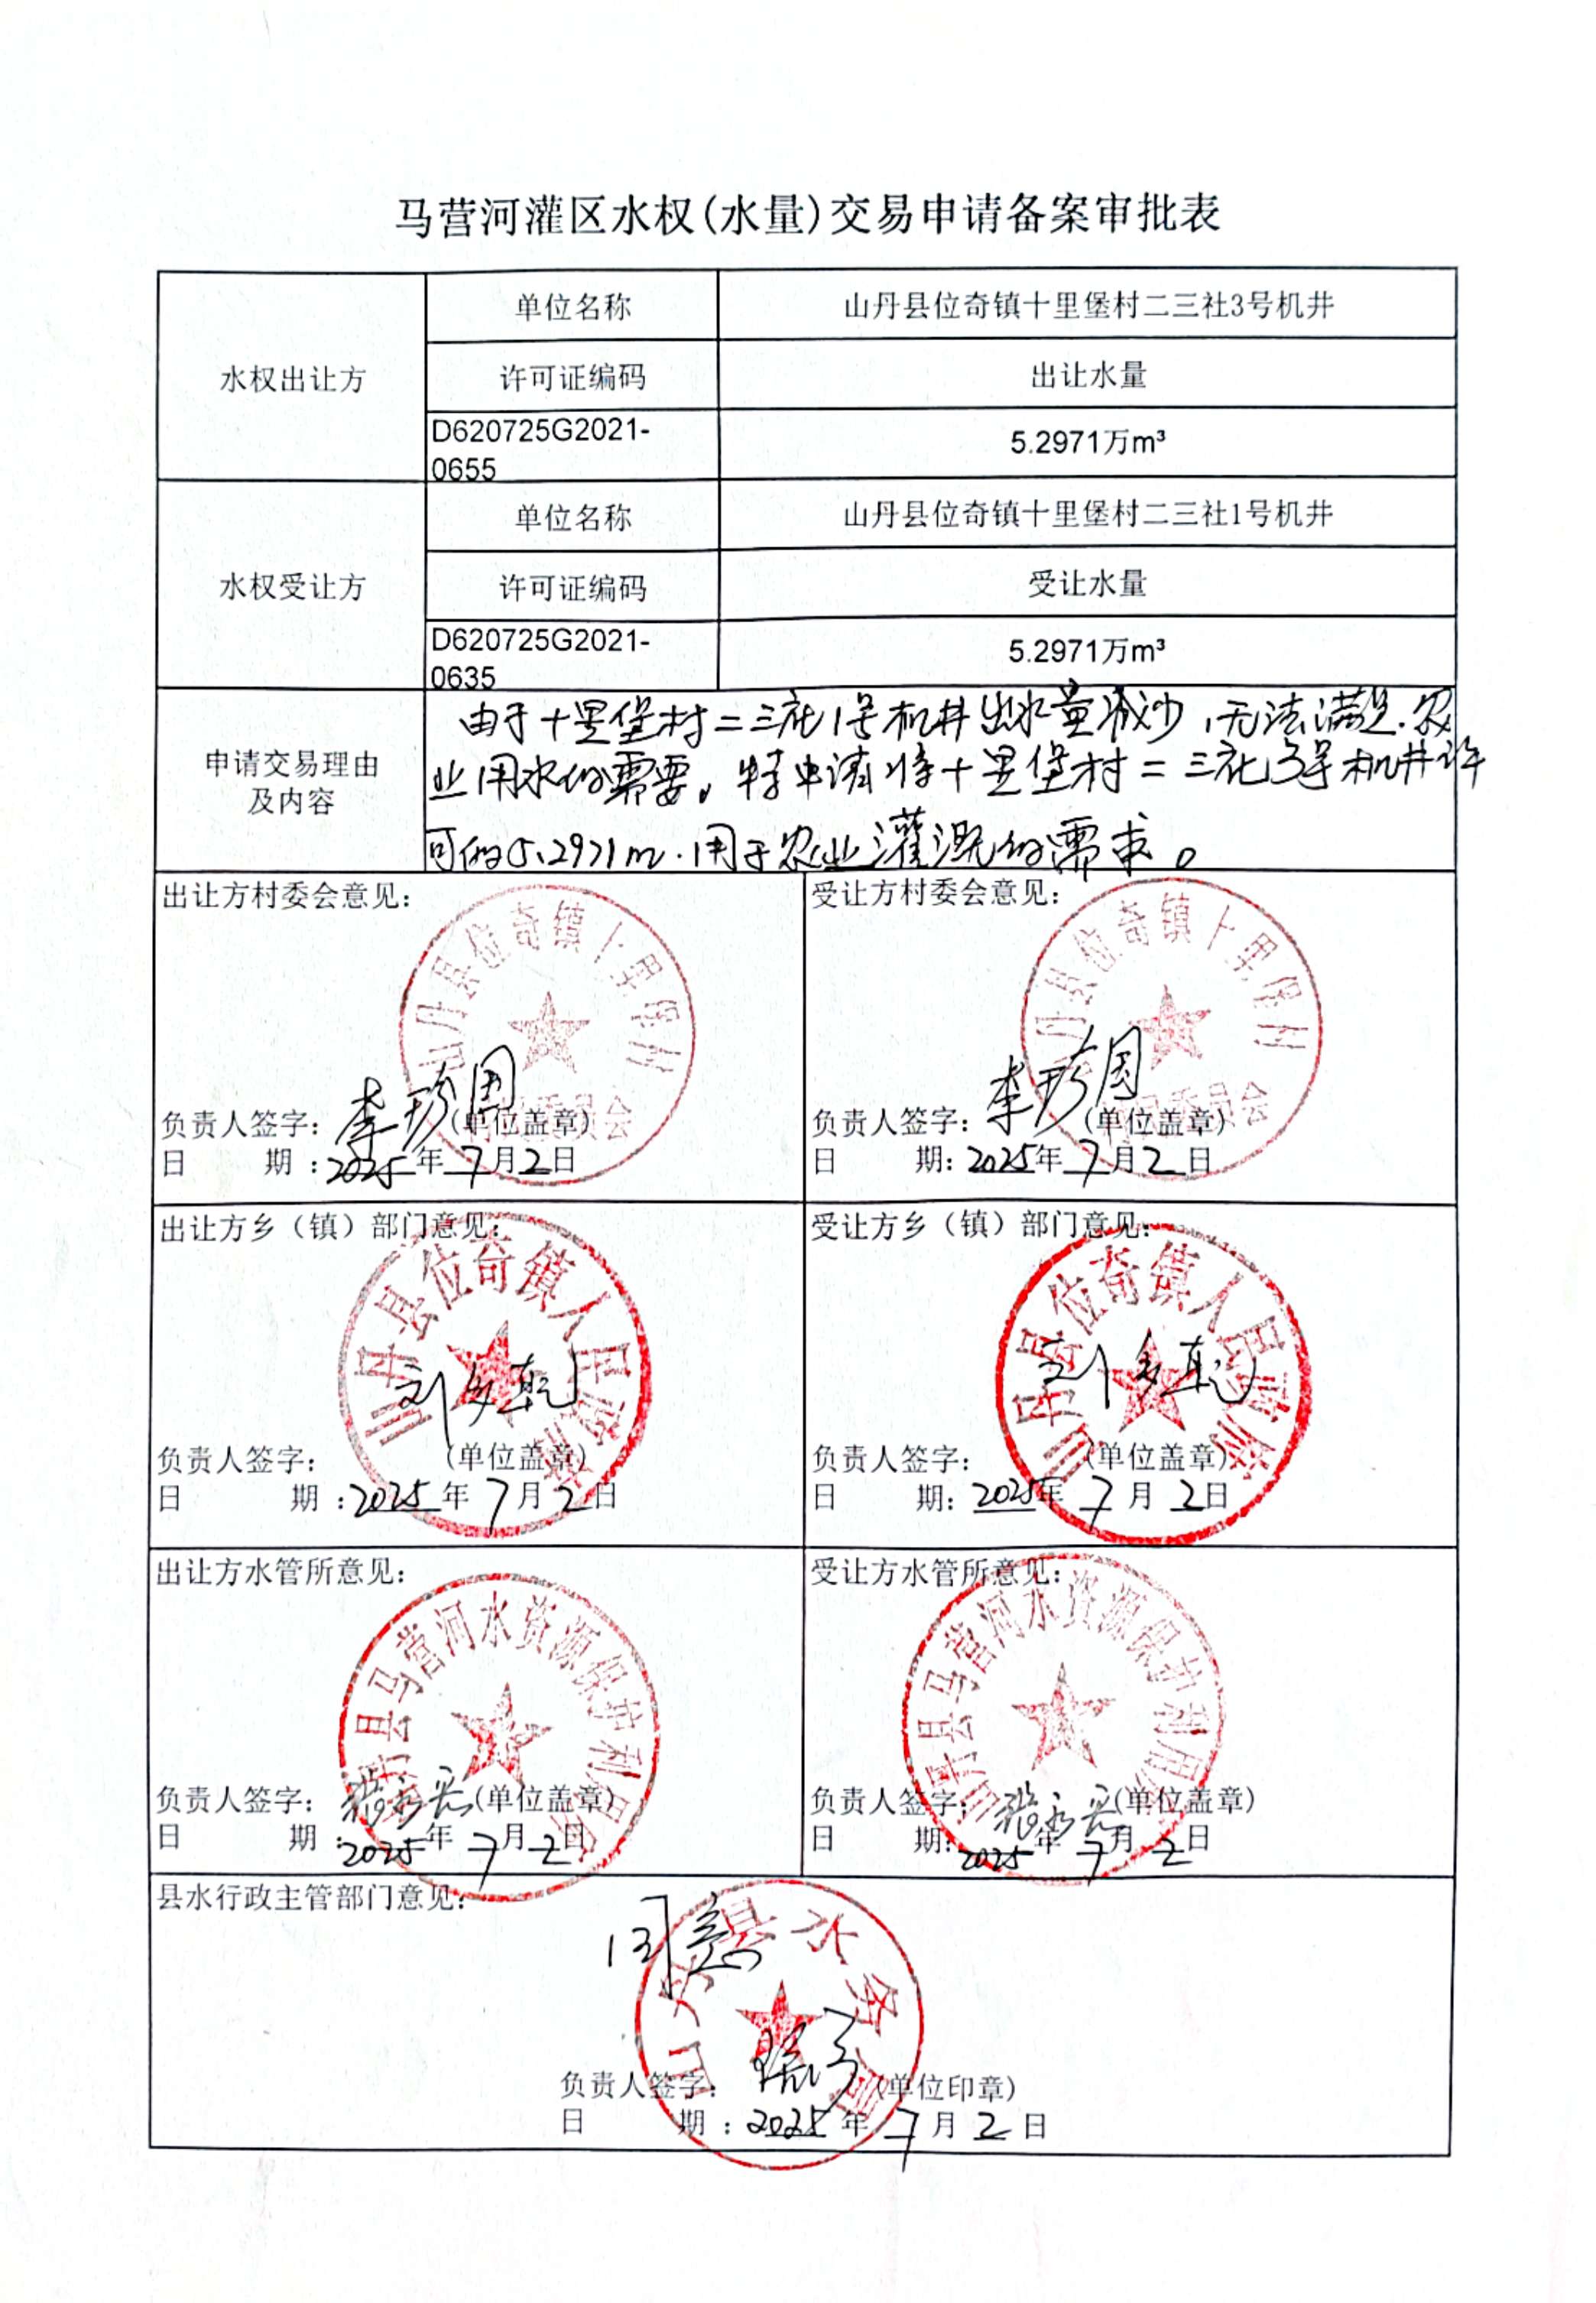 马营河灌区水权(水量)交易申请备案审批表
水权出让方
单位名称
山丹县位奇镇十里堡村二三社3号机井
许可证编码
出让水量
D620725G2021-
0655
5.2971万m³
水权受让方
单位名称
山丹县位奇镇十里堡村二三社1号机井
许可证编码
受让水量
D620725G2021-
0635
5.2971万m³
申请交易理由
及内容
由于十里堡村二三社1号机井出水量减少,无法满足农
业用水的需要。特申请将十里堡村二三社3号机井许
可的5.2971m.用于农业灌溉的需求。
出让方村委会意见:
山丹县位奇镇十里堡村
负责人签字: (单位盖章)
日 期:2025年7月2日
受让方村委会意见:
山丹县位奇镇十里堡村
负责人签字: (单位盖章)
日 期:2025年7月2日
出让方乡(镇)部门意见:
山丹县位奇镇人民政府
负责人签字: (单位盖章)
日 期:2025年7月2日
受让方乡(镇)部门意见:
山丹县位奇镇人民政府
负责人签字: (单位盖章)
日 期:2025年7月2日
出让方水管所意见:
山丹县马营河水资源保护利用
负责人签字: (单位盖章)
日 期:2025年7月2日
受让方水管所意见:
山丹县马营河水资源保护利用
负责人签字: (单位盖章)
日 期:2025年7月2日
县水行政主管部门意见:
同意
山丹县水务局
负责人签字: (单位印章)
日 期:2025年7月2日